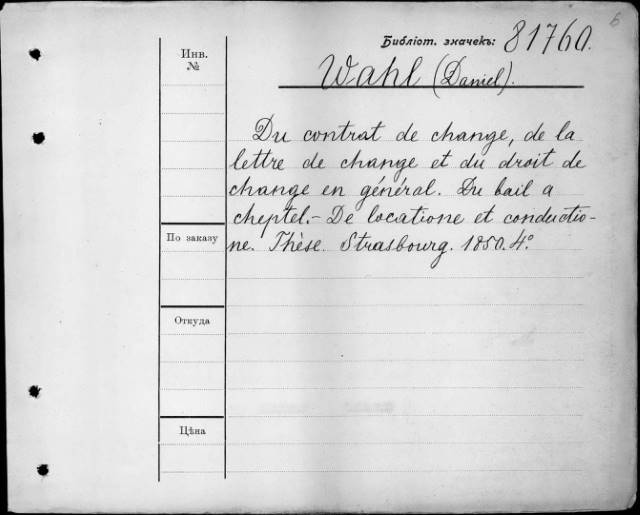 6
Библіот. значекъ: 81760.
Инв. №
Wahl (Daniel).
Du contrat de change, de la
lettre de change et du droit de
change en général. Du bail a
cheptel. - De locatione et conductio-
ne. Thèse. Strasbourg. 1850. 4º
По заказу
Откуда
Цѣна